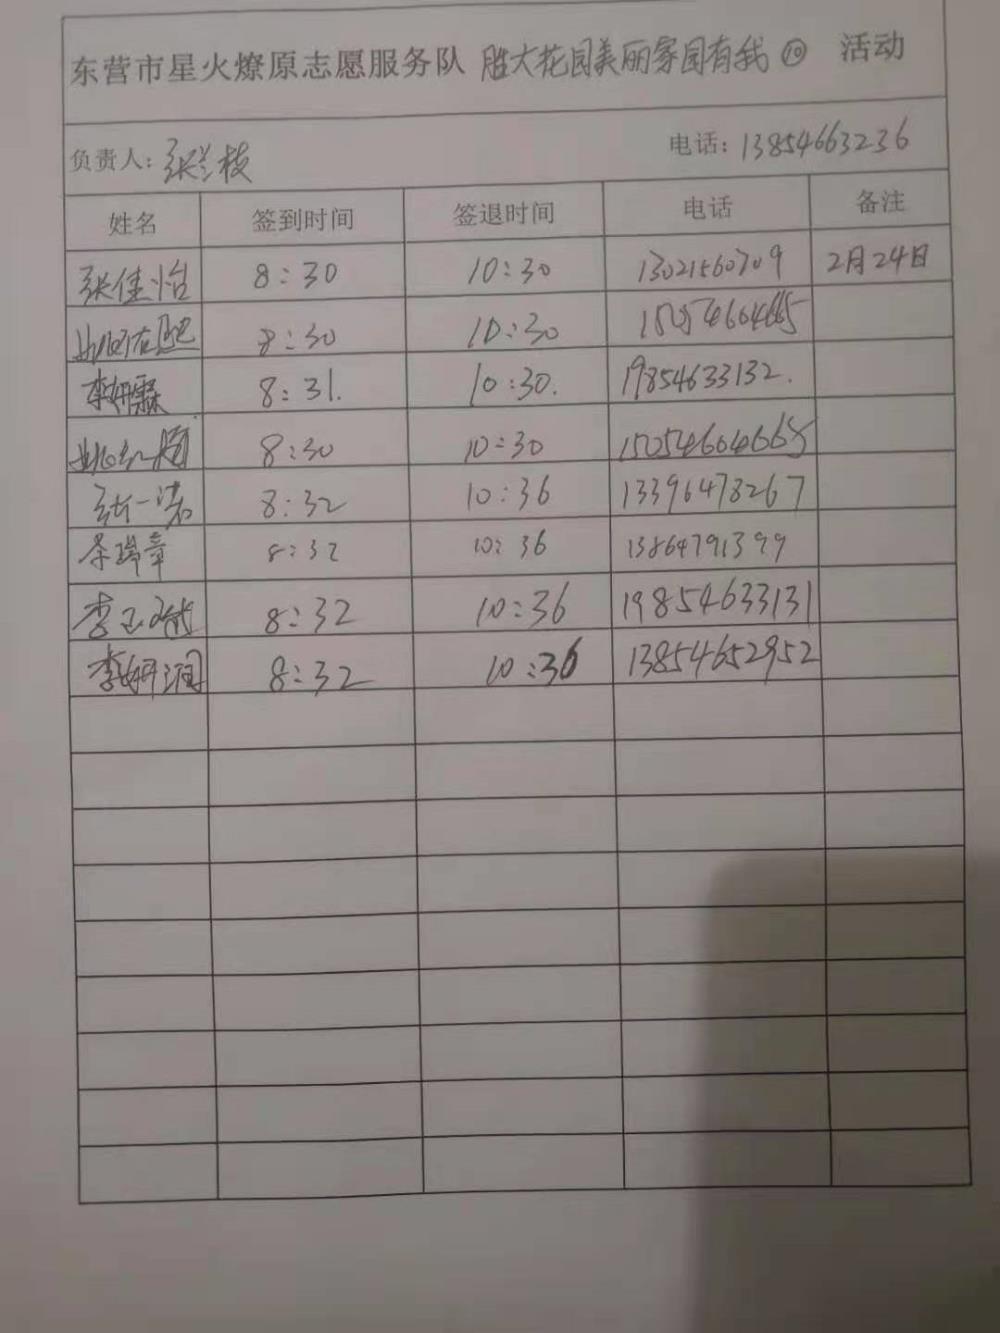 东营市星火燎原志愿服务队 胜大花园美丽家园有我 ⑩ 活动
负责人：张兰枝 电话：13854663236
姓名 签到时间 签退时间 电话 备注
张佳怡 8:30 10:30 13021560709 2月24日
8:30 10:30 15054604665
李妍霖 8:31. 10:30. 19854633132.
8:30 10:30 15054604665
张一诺 8:32 10:36 13396478267
8:32 10:36 13864791399
李 8:32 10:36 19854633131
李妍润 8:32 10:36 13854652952